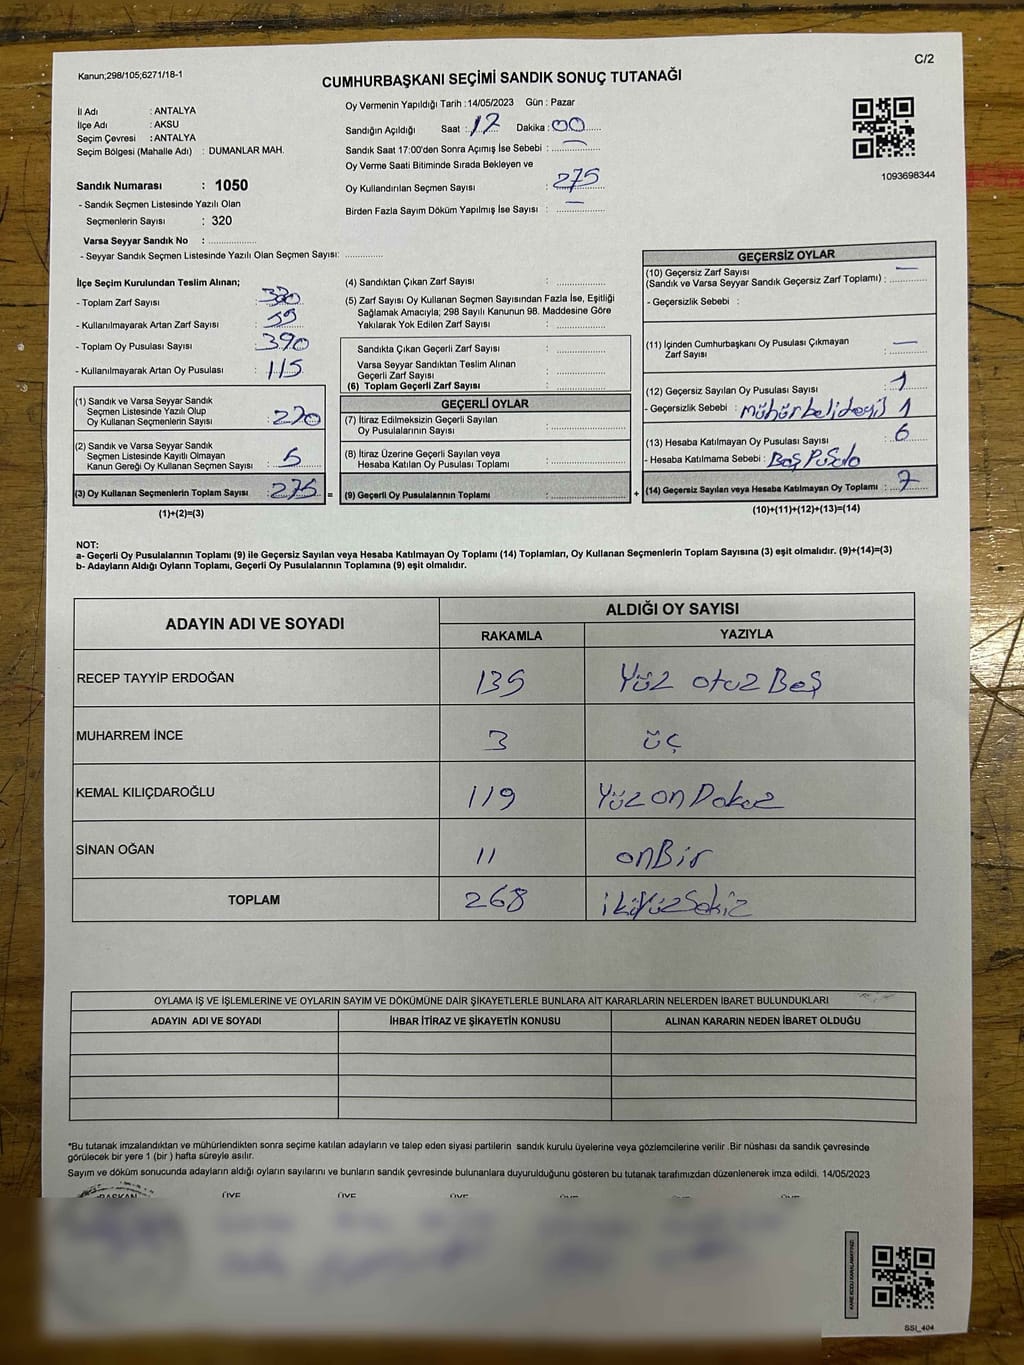 Kanun;298/105;6271/18-1
C/2
CUMHURBAŞKANI SEÇİMİ SANDIK SONUÇ TUTANAĞI
İl Adı : ANTALYA
İlçe Adı : AKSU
Seçim Çevresi : ANTALYA
Seçim Bölgesi (Mahalle Adı) : DUMANLAR MAH.
Oy Vermenin Yapıldığı Tarih : 14/05/2023 Gün : Pazar
Sandığın Açıldığı Saat : 17 Dakika : 00
Sandık Saat 17:00'den Sonra Açımış İse Sebebi : —
Oy Verme Saati Bitiminde Sırada Bekleyen ve
Oy Kullandırılan Seçmen Sayısı : 275
Birden Fazla Sayım Döküm Yapılmış İse Sayısı : —
1093698344
Sandık Numarası : 1050
- Sandık Seçmen Listesinde Yazılı Olan
Seçmenlerin Sayısı : 320
Varsa Seyyar Sandık No :
- Seyyar Sandık Seçmen Listesinde Yazılı Olan Seçmen Sayısı:
İlçe Seçim Kurulundan Teslim Alınan;
- Toplam Zarf Sayısı :
- Kullanılmayarak Artan Zarf Sayısı :
- Toplam Oy Pusulası Sayısı : 390
- Kullanılmayarak Artan Oy Pusulası : 115
(1) Sandık ve Varsa Seyyar Sandık
Seçmen Listesinde Yazılı Olup
Oy Kullanan Seçmenlerin Sayısı : 270
(2) Sandık ve Varsa Seyyar Sandık
Seçmen Listesinde Kayıtlı Olmayan
Kanun Gereği Oy Kullanan Seçmen Sayısı : 5
(3) Oy Kullanan Seçmenlerin Toplam Sayısı : 275 =
(1)+(2)=(3)
(4) Sandıktan Çıkan Zarf Sayısı :
(5) Zarf Sayısı Oy Kullanan Seçmen Sayısından Fazla İse, Eşitliği
Sağlamak Amacıyla; 298 Sayılı Kanunun 98. Maddesine Göre
Yakılarak Yok Edilen Zarf Sayısı :
Sandıkta Çıkan Geçerli Zarf Sayısı :
Varsa Seyyar Sandıktan Teslim Alınan
Geçerli Zarf Sayısı :
(6) Toplam Geçerli Zarf Sayısı :
GEÇERLİ OYLAR
(7) İtiraz Edilmeksizin Geçerli Sayılan
Oy Pusulalarının Sayısı :
(8) İtiraz Üzerine Geçerli Sayılan veya
Hesaba Katılan Oy Pusulası Toplamı :
(9) Geçerli Oy Pusulalarının Toplamı : +
GEÇERSİZ OYLAR
(10) Geçersiz Zarf Sayısı —
(Sandık ve Varsa Seyyar Sandık Geçersiz Zarf Toplamı) :
- Geçersizlik Sebebi :
(11) İçinden Cumhurbaşkanı Oy Pusulası Çıkmayan
Zarf Sayısı : —
(12) Geçersiz Sayılan Oy Pusulası Sayısı : 1
- Geçersizlik Sebebi : mühür belideğil 1
(13) Hesaba Katılmayan Oy Pusulası Sayısı : 6
- Hesaba Katılmama Sebebi : Boş Pusola
(14) Geçersiz Sayılan veya Hesaba Katılmayan Oy Toplamı : 7
(10)+(11)+(12)+(13)=(14)
NOT:
a- Geçerli Oy Pusulalarının Toplamı (9) ile Geçersiz Sayılan veya Hesaba Katılmayan Oy Toplamı (14) Toplamları, Oy Kullanan Seçmenlerin Toplam Sayısına (3) eşit olmalıdır. (9)+(14)=(3)
b- Adayların Aldığı Oyların Toplamı, Geçerli Oy Pusulalarının Toplamına (9) eşit olmalıdır.
ADAYIN ADI VE SOYADI
ALDIĞI OY SAYISI
RAKAMLA YAZIYLA
RECEP TAYYİP ERDOĞAN 135 Yüz otuz Beş
MUHARREM İNCE 3 üç
KEMAL KILIÇDAROĞLU 119 Yüz on Dokuz
SİNAN OĞAN 11 onBir
TOPLAM 268 ikiYüzSekiz
OYLAMA İŞ VE İŞLEMLERİNE VE OYLARIN SAYIM VE DÖKÜMÜNE DAİR ŞİKAYETLERLE BUNLARA AİT KARARLARIN NELERDEN İBARET BULUNDUKLARI
ADAYIN ADI VE SOYADI İHBAR İTİRAZ VE ŞİKAYETİN KONUSU ALINAN KARARIN NEDEN İBARET OLDUĞU
*Bu tutanak imzalandıktan ve mühürlendikten sonra seçime katılan adayların ve talep eden siyasi partilerin sandık kurulu üyelerine veya gözlemcilerine verilir .Bir nüshası da sandık çevresinde
görülecek bir yere 1 (bir ) hafta süreyle asılır.
Sayım ve döküm sonucunda adayların aldığı oyların sayılarını ve bunların sandık çevresinde bulunanlara duyurulduğunu gösteren bu tutanak tarafımızdan düzenlenerek imza edildi. 14/05/2023
BAŞKAN ÜYE ÜYE ÜYE ÜYE ÜYE ÜYE
KARE KODU KARALAMAYINIZ!
SSI_404